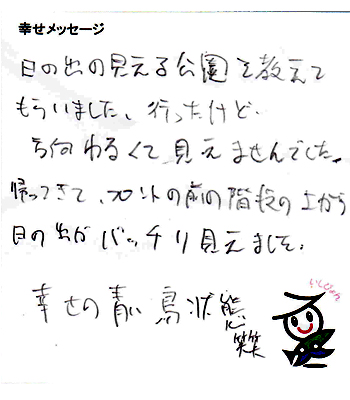 幸せメッセージ
日の出の見える公園を教えて
もらいました、行ったけど、
方向わるくて見えませんでした。
帰ってきて、フロントの前の階段の上から
日の出がバッチリ見えました。
幸せの青い鳥状態
笑笑